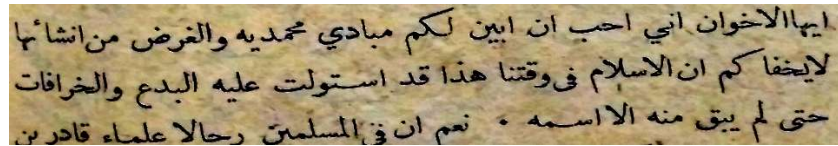 ايها الاخوان اني احب ان ابين لكم مبادي محمديه والغرض من انشائها
لايخفا كم ان الاسلام فى وقتنا هذا قد استولت عليه البدع والخرافات
حتى لم يبق منه الا اسمه . نعم ان في المسلمين رجالا علماء قادرين